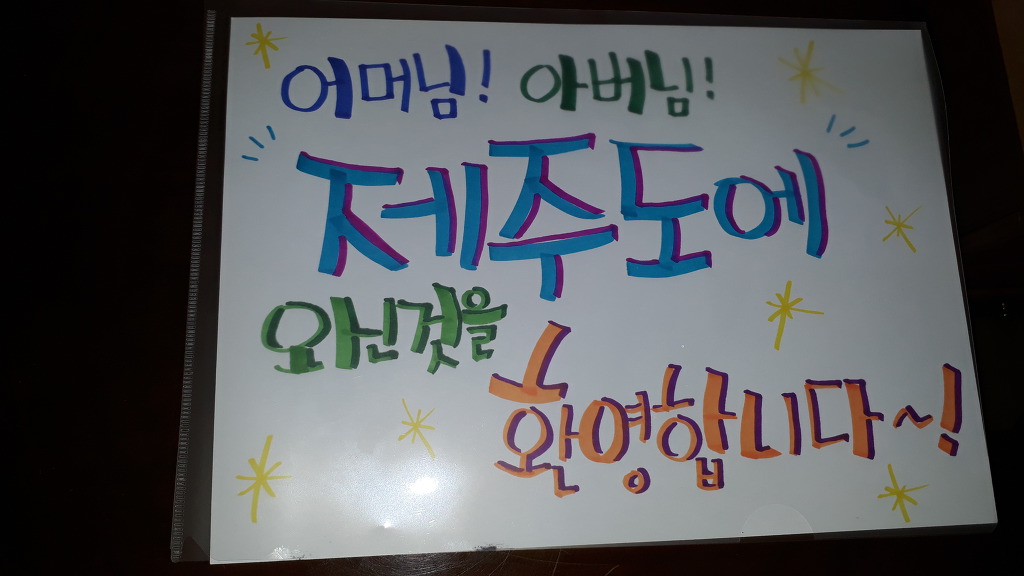 어머님! 아버님!
제주도에
오신것을
환영합니다~!